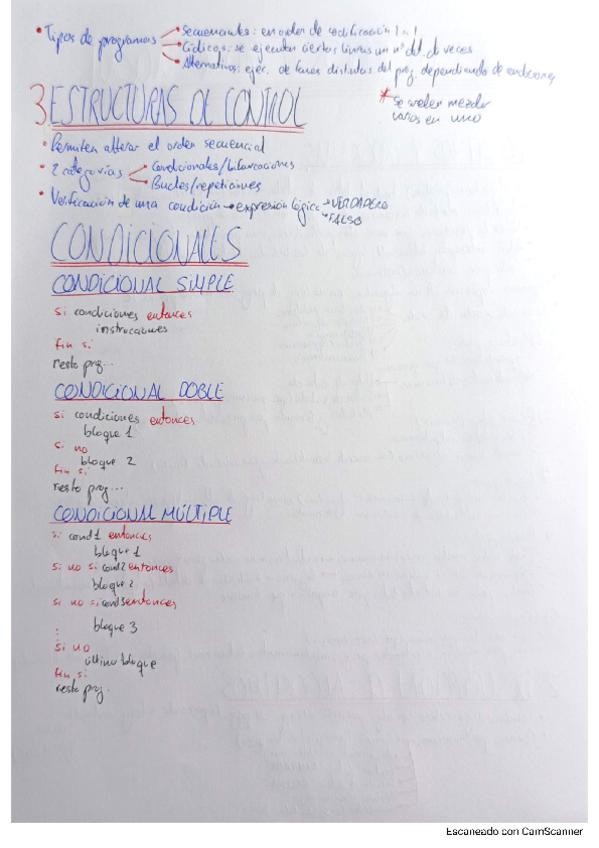 • Tipos de programas
Secuenciales: en orden de codificación 1 a 1
Cíclicos: se ejecutan ciertas líneas un nº det. de veces
Alternativos: ejec. de tareas distintas del prg. dependiendo de condiciones
* Se suelen mezclar
varios en uno
3. ESTRUCTURAS DE CONTROL
• Permiten alterar el orden secuencial
• 2 categorías
Condicionales/bifurcaciones
Bucles/repeticiones
• Verificación de una condición → expresión lógica → VERDADERO
→ FALSO
CONDICIONALES
CONDICIONAL SIMPLE
si condiciones entonces
instrucciones
fin si
resto prg...
CONDICIONAL DOBLE
si condiciones entonces
bloque 1
si no
bloque 2
fin si
resto prg...
CONDICIONAL MÚLTIPLE
si cond1 entonces
bloque 1
si no si cond2 entonces
bloque 2
si no si cond3 entonces
bloque 3
⋮
si no
último bloque
fin si
resto prg.
Escaneado con CamScanner